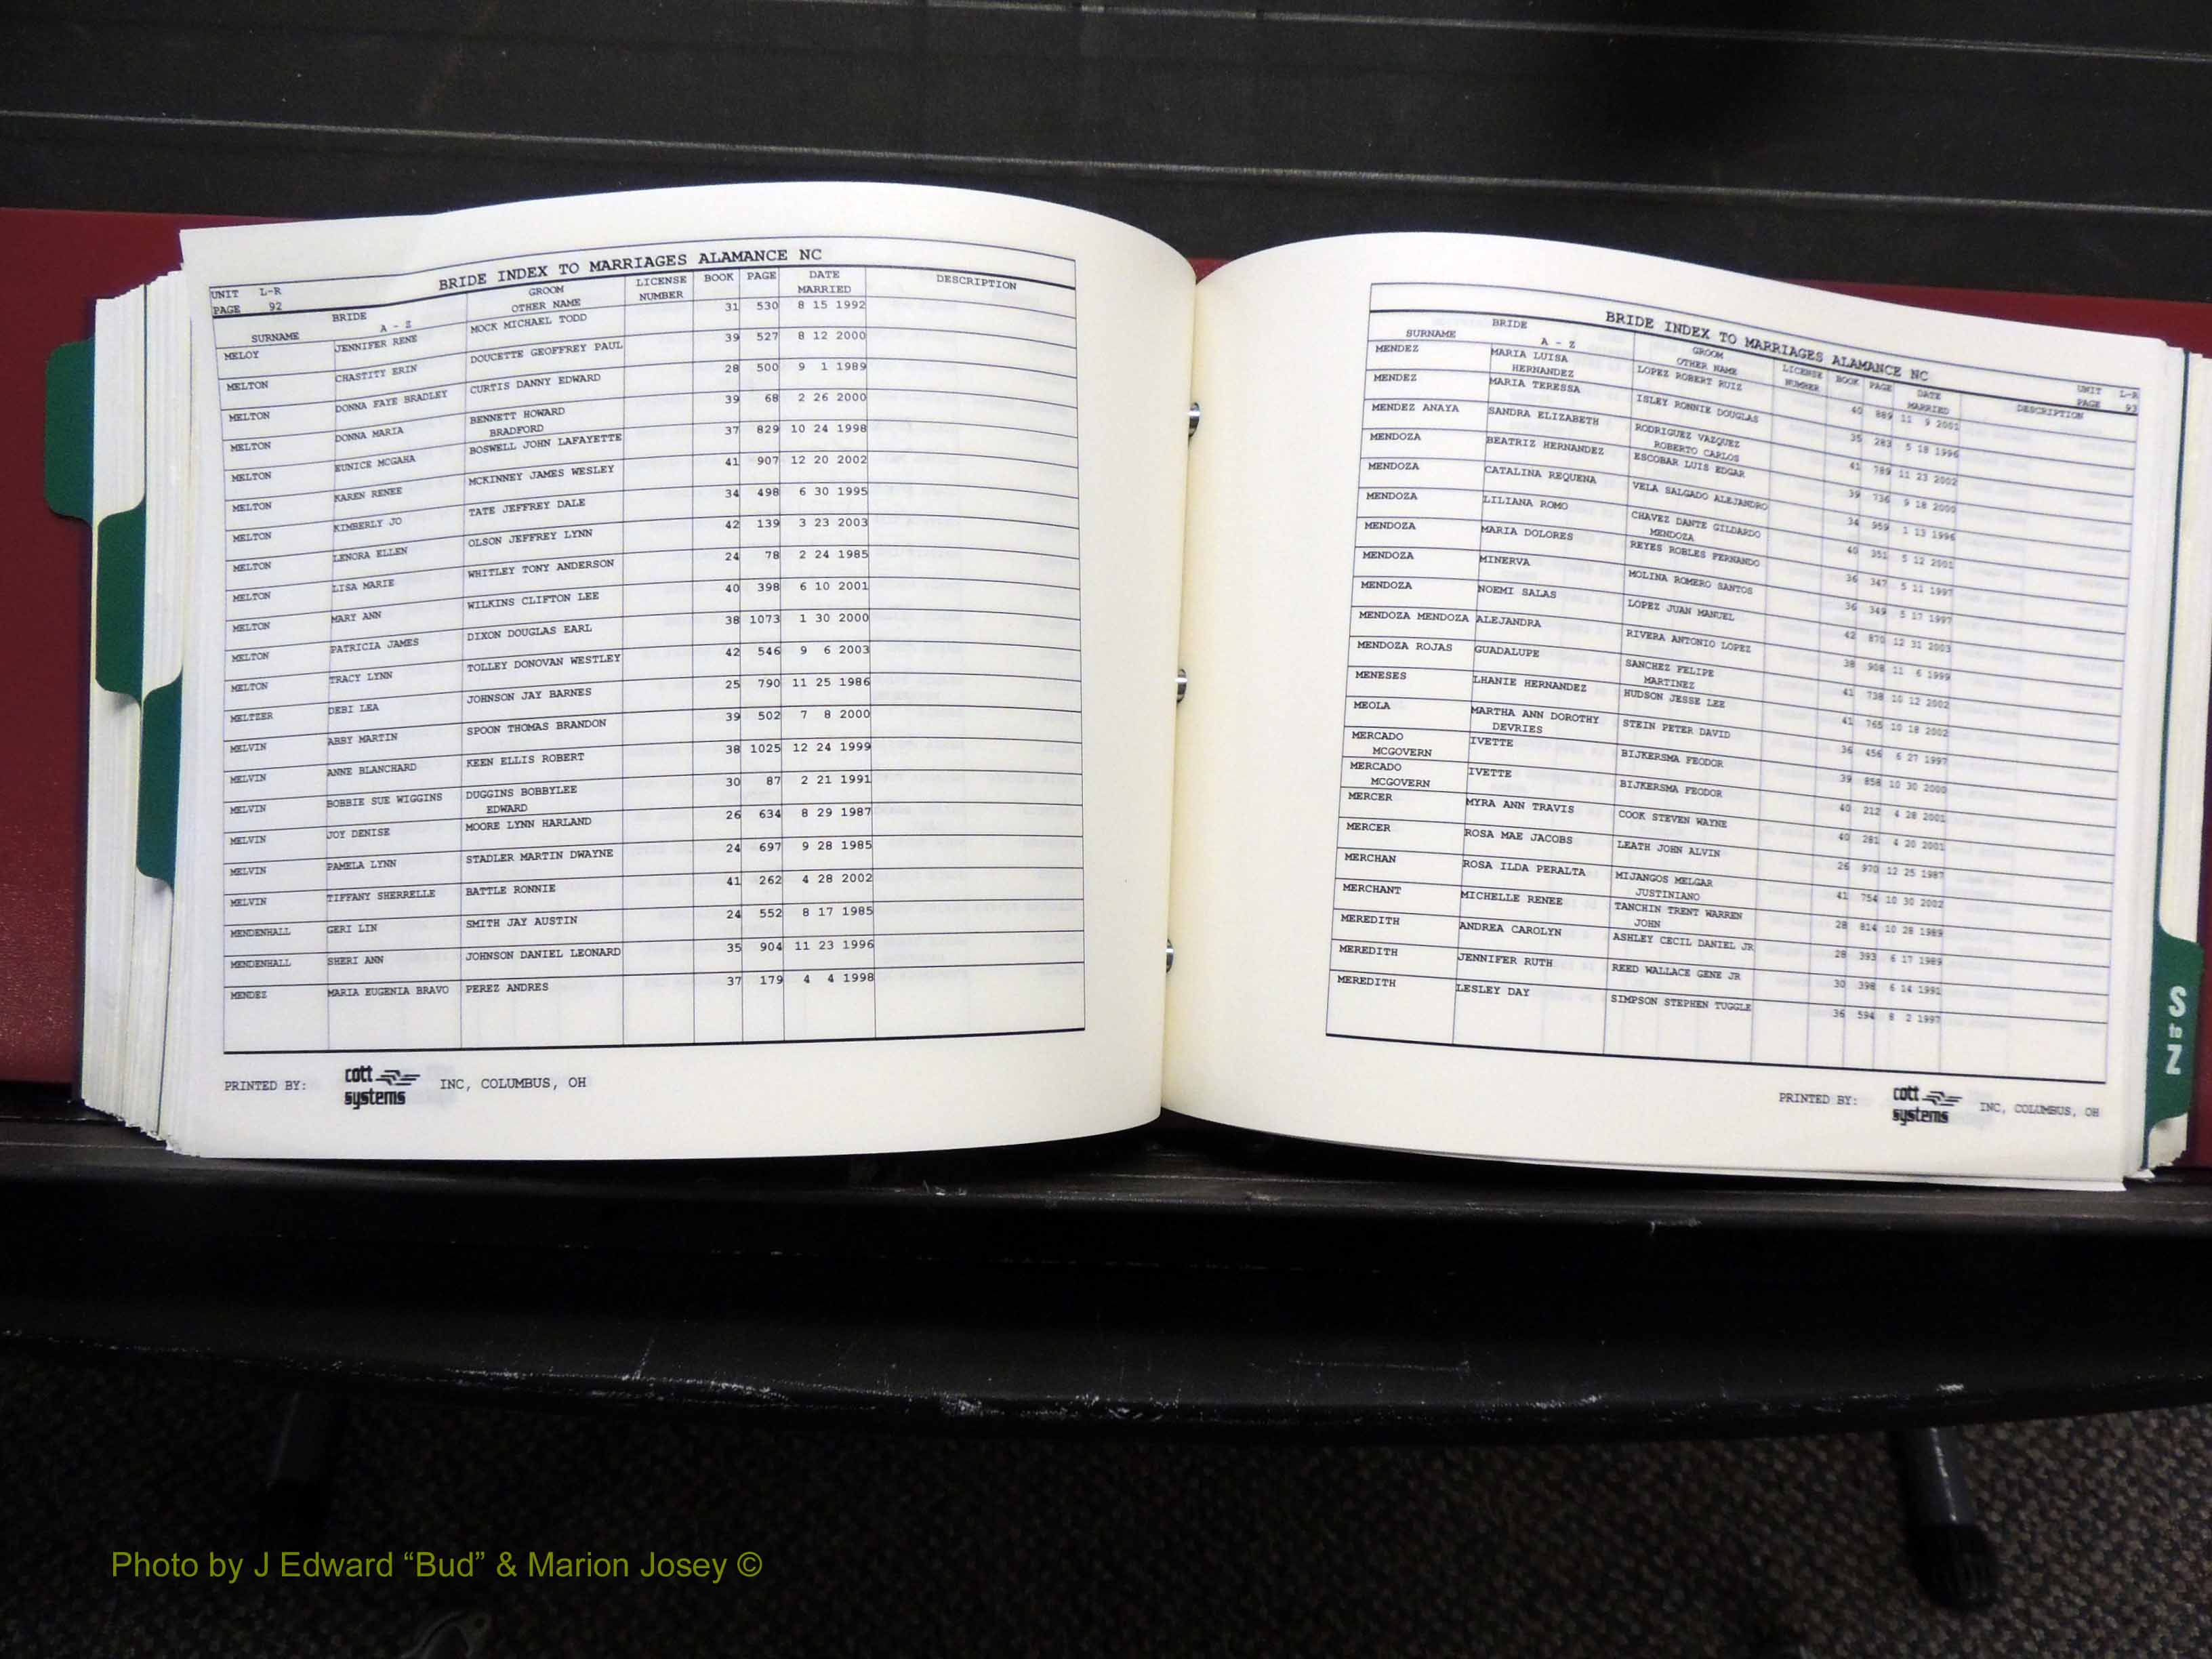 BRIDE INDEX TO MARRIAGES ALAMANCE NC
UNIT L-R
PAGE 92
BRIDE GROOM LICENSE BOOK PAGE DATE DESCRIPTION
SURNAME A - Z OTHER NAME NUMBER MARRIED
MELOY JENNIFER RENE MOCK MICHAEL TODD 31 530 8 15 1992
MELTON CHASTITY ERIN DOUCETTE GEOFFREY PAUL 39 527 8 12 2000
MELTON DONNA FAYE BRADLEY CURTIS DANNY EDWARD 28 500 9 1 1989
MELTON DONNA MARIA BENNETT HOWARD 39 68 2 26 2000
BRADFORD
MELTON EUNICE MCGAHA BOSWELL JOHN LAFAYETTE 37 829 10 24 1998
MELTON KAREN RENEE MCKINNEY JAMES WESLEY 41 907 12 20 2002
MELTON KIMBERLY JO TATE JEFFREY DALE 34 498 6 30 1995
MELTON LENORA ELLEN OLSON JEFFREY LYNN 42 139 3 23 2003
MELTON LISA MARIE WHITLEY TONY ANDERSON 24 78 2 24 1985
MELTON MARY ANN WILKINS CLIFTON LEE 40 398 6 10 2001
MELTON PATRICIA JAMES DIXON DOUGLAS EARL 38 1073 1 30 2000
MELTON TRACY LYNN TOLLEY DONOVAN WESTLEY 42 546 9 6 2003
MELTZER DEBI LEA JOHNSON JAY BARNES 25 790 11 25 1986
MELVIN ABBY MARTIN SPOON THOMAS BRANDON 39 502 7 8 2000
MELVIN ANNE BLANCHARD KEEN ELLIS ROBERT 38 1025 12 24 1999
MELVIN BOBBIE SUE WIGGINS DUGGINS BOBBYLEE 30 87 2 21 1991
EDWARD
MELVIN JOY DENISE MOORE LYNN HARLAND 26 634 8 29 1987
MELVIN PAMELA LYNN STADLER MARTIN DWAYNE 24 697 9 28 1985
MELVIN TIFFANY SHERRELLE BATTLE RONNIE 41 262 4 28 2002
MENDENHALL GERI LIN SMITH JAY AUSTIN 24 552 8 17 1985
MENDENHALL SHERI ANN JOHNSON DANIEL LEONARD 35 904 11 23 1996
MENDEZ MARIA EUGENIA BRAVO PEREZ ANDRES 37 179 4 4 1998
PRINTED BY: cott systems INC, COLUMBUS, OH
BRIDE INDEX TO MARRIAGES ALAMANCE NC
UNIT L-R
PAGE 93
BRIDE GROOM LICENSE BOOK PAGE DATE DESCRIPTION
SURNAME A - Z OTHER NAME NUMBER MARRIED
MENDEZ MARIA LUISA LOPEZ ROBERT RUIZ 40 889 11 9 2001
HERNANDEZ
MENDEZ MARIA TERESSA ISLEY RONNIE DOUGLAS 35 283 5 18 1996
MENDEZ ANAYA SANDRA ELIZABETH RODRIGUEZ VAZQUEZ 41 789 11 23 2002
ROBERTO CARLOS
MENDOZA BEATRIZ HERNANDEZ ESCOBAR LUIS EDGAR 39 736 9 18 2000
MENDOZA CATALINA REQUENA VELA SALGADO ALEJANDRO 34 959 1 13 1996
MENDOZA LILIANA ROMO CHAVEZ DANTE GILDARDO 40 351 5 12 2001
MENDOZA
MENDOZA MARIA DOLORES REYES ROBLES FERNANDO 36 347 5 11 1997
MENDOZA MINERVA MOLINA ROMERO SANTOS 36 349 5 17 1997
MENDOZA NOEMI SALAS LOPEZ JUAN MANUEL 42 870 12 31 2003
MENDOZA MENDOZA ALEJANDRA RIVERA ANTONIO LOPEZ 38 908 11 6 1999
MENDOZA ROJAS GUADALUPE SANCHEZ FELIPE 41 738 10 12 2002
MARTINEZ
MENESES LHANIE HERNANDEZ HUDSON JESSE LEE 41 765 10 18 2002
MEOLA MARTHA ANN DOROTHY STEIN PETER DAVID 36 456 6 27 1997
DEVRIES
MERCADO IVETTE BIJKERSMA FEODOR 39 858 10 30 2000
MCGOVERN
MERCADO IVETTE BIJKERSMA FEODOR 40 212 4 28 2001
MCGOVERN
MERCER MYRA ANN TRAVIS COOK STEVEN WAYNE 40 281 4 20 2001
MERCER ROSA MAE JACOBS LEATH JOHN ALVIN 26 970 12 25 1987
MERCHAN ROSA ILDA PERALTA MIJANGOS MELGAR 41 754 10 30 2002
JUSTINIANO
MERCHANT MICHELLE RENEE TANCHIN TRENT WARREN 28 814 10 28 1989
JOHN
MEREDITH ANDREA CAROLYN ASHLEY CECIL DANIEL JR 28 393 6 17 1989
MEREDITH JENNIFER RUTH REED WALLACE GENE JR 30 398 6 14 1991
MEREDITH LESLEY DAY SIMPSON STEPHEN TUGGLE 36 594 8 2 1997
PRINTED BY: cott systems INC, COLUMBUS, OH
S
to
Z
Photo by J Edward “Bud” & Marion Josey ©